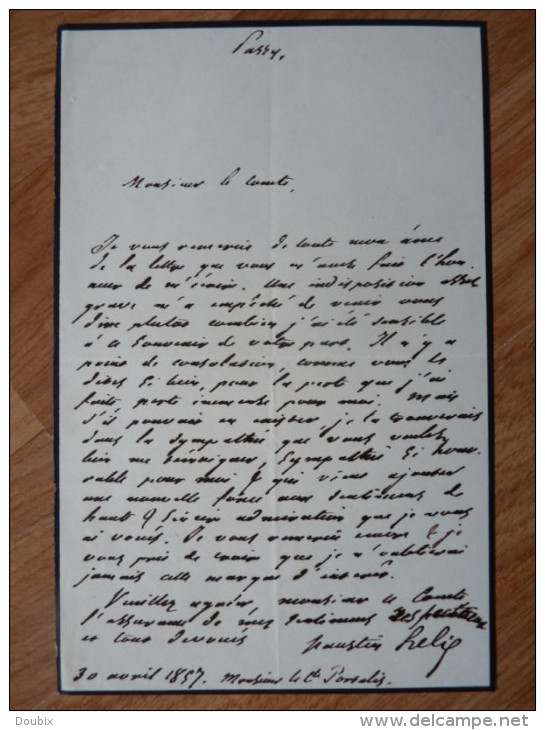 Passy,
Monsieur le comte,
Je vous remercie de toute mon âme
de la lettre que vous m'avez fait l'hon
neur de m'écrire. Une indisposition assez
grave m'a empêché de venir vous
dire plutôt combien j'ai été sensible
à ce souvenir de votre part. Il n'y a
point de consolation, comme vous le
dites si bien, pour la perte que j'ai
faite, perte immense pour moi. Mais
s'il pouvait en exister, je la trouverais
dans la sympathie que vous voulez
bien me témoigner, sympathie si hono
rable pour moi & qui vient ajouter
une nouvelle force aux sentimens de
haute & sincère admiration que je vous
ai voués. Je vous remercie encore & je
vous prie de croire que je n'oublierai
jamais cette marque d'intérêt.
Veuillez agréer, monsieur le Comte
l'assurance de mes sentimens respectueux
et tout dévoués
faustin helie
30 avril 1857. Monsieur le Cte Portalis.
Doubix
www.delcampe.net